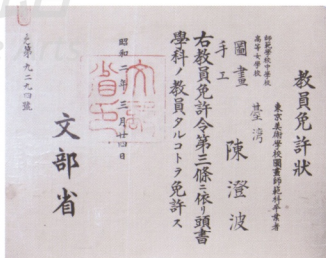 教員免許狀
東京美術學校圖畫師範科卒業者
臺湾 陳澄波
師範學校中學校
高等女學校
圖畫
手工
右教員免許令第三條ニ依リ頭書
學科ノ教員タルコトヲ免許ス
昭和二年三月廿四日
文部省
文部省印
第九二九四號